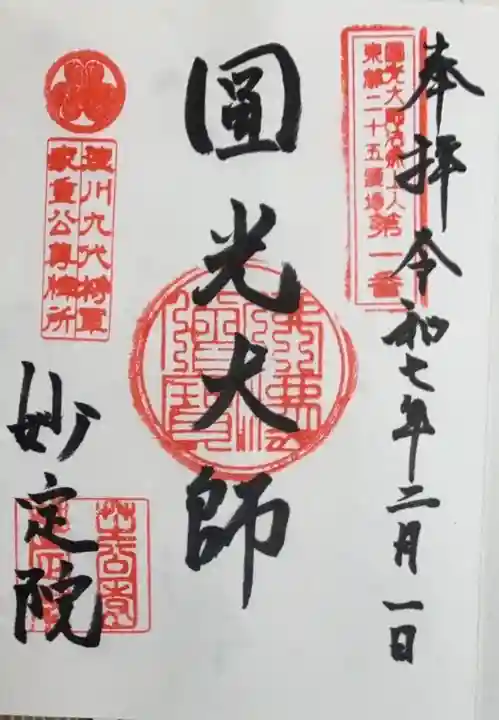 奉拝 令和七年二月一日
圓光大師法然上人
東都二十五霊場
第一番
圓光大師
徳川九代将軍
家重公尊牌所
妙定院